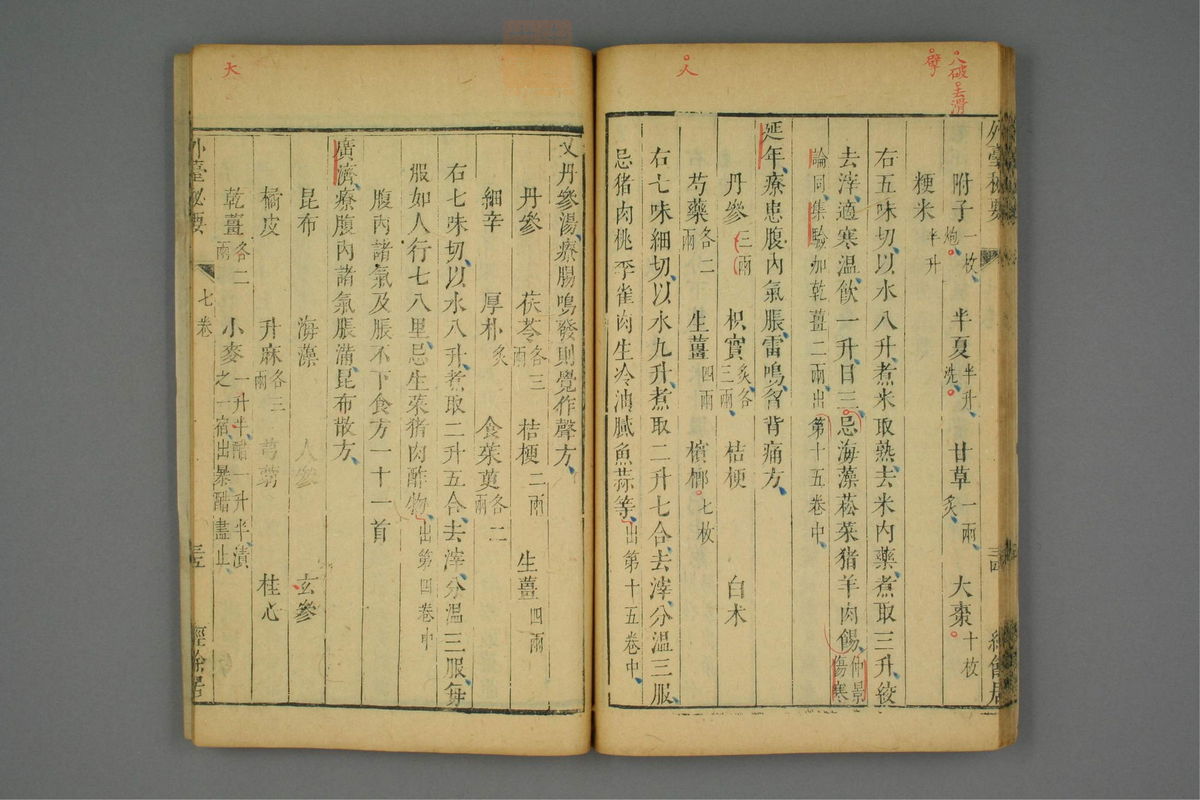 外臺秘要
附子一枚炮 半夏半升洗 甘草一兩炙 大棗十枚
粳米半升
右五味切以水八升煮米取熟去米內藥煮取三升絞
去滓適寒溫飲一升日三忌海藻菘菜猪羊肉餳仲景傷寒
論同集驗加乾薑二兩出第十五卷中
延年療患腹內氣脹雷鳴胷背痛方
丹參三兩 枳實炙各三兩 桔梗 白朮
芍藥各二兩 生薑四兩 檳榔七枚
右七味細切以水九升煮取二升七合去滓分溫三服
忌猪肉桃李雀肉生冷油膩魚蒜等出第十五卷中
又丹參湯療腸鳴發則覺作聲方
丹參 茯苓各三兩 桔梗二兩 生薑四兩
細辛 厚朴炙 食茱萸各二兩
右七味切以水八升煮取二升五合去滓分溫三服每
服如人行七八里忌生菜猪肉酢物出第四卷中
腹內諸氣及脹不下食方一十一首
廣濟療腹內諸氣脹滿昆布散方
昆布 海藻 人參 玄參
橘皮 升麻各三兩 芎藭 桂心
乾薑各二兩 小麥一升半醋一升半漬之一宿出暴醋盡止
外臺秘要 七卷 經餘居
大
人
八破去滑
擘